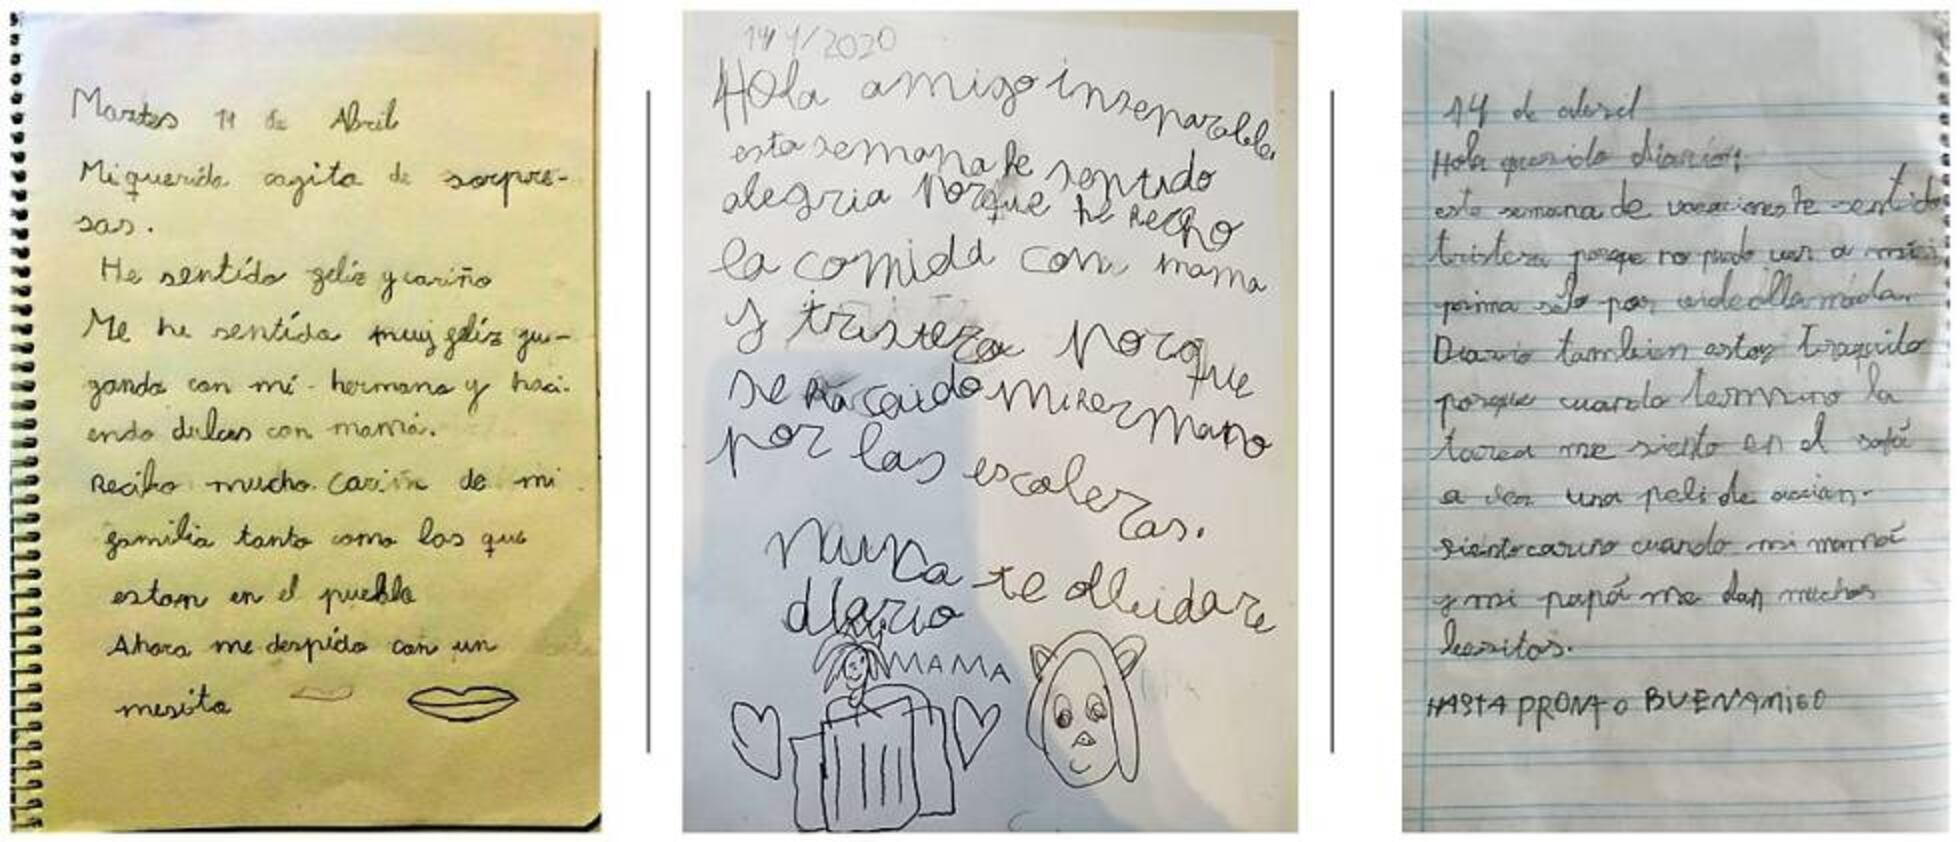 Martes 14 de Abril
Mi querida cagita de sorpre-
sas.
He sentido feliz y cariño
Me he sentido muy feliz ju-
gando con mi hermana y haci-
endo dulces con mamá.
Recibo mucho cariñ de mi
familia tanto como los que
estan en el pueblo
Ahora me despido con un
mesito
14/4/2020
Hola amigo inseparable.
esta semana he sentido
alegria Porque he hecho
la comida con mama
y tristeza Porque
se ha caido mi hermano
por las escaleras.
Nunca te olbidare
diario
MAMA
14 de abril
Hola querido diario:
esta semana de vacaciones he sentido
tristeza porque no puedo ver a mi
prima solo por
Diario tambien estoy traquilo
porque cuando termino la
tarea me siento en el sofá
a ver una peli de accian.
siento cariño cuando mi mamá
y mi papá me dan muchos
besitos.
HASTA PRONTO BUEN AMIGO